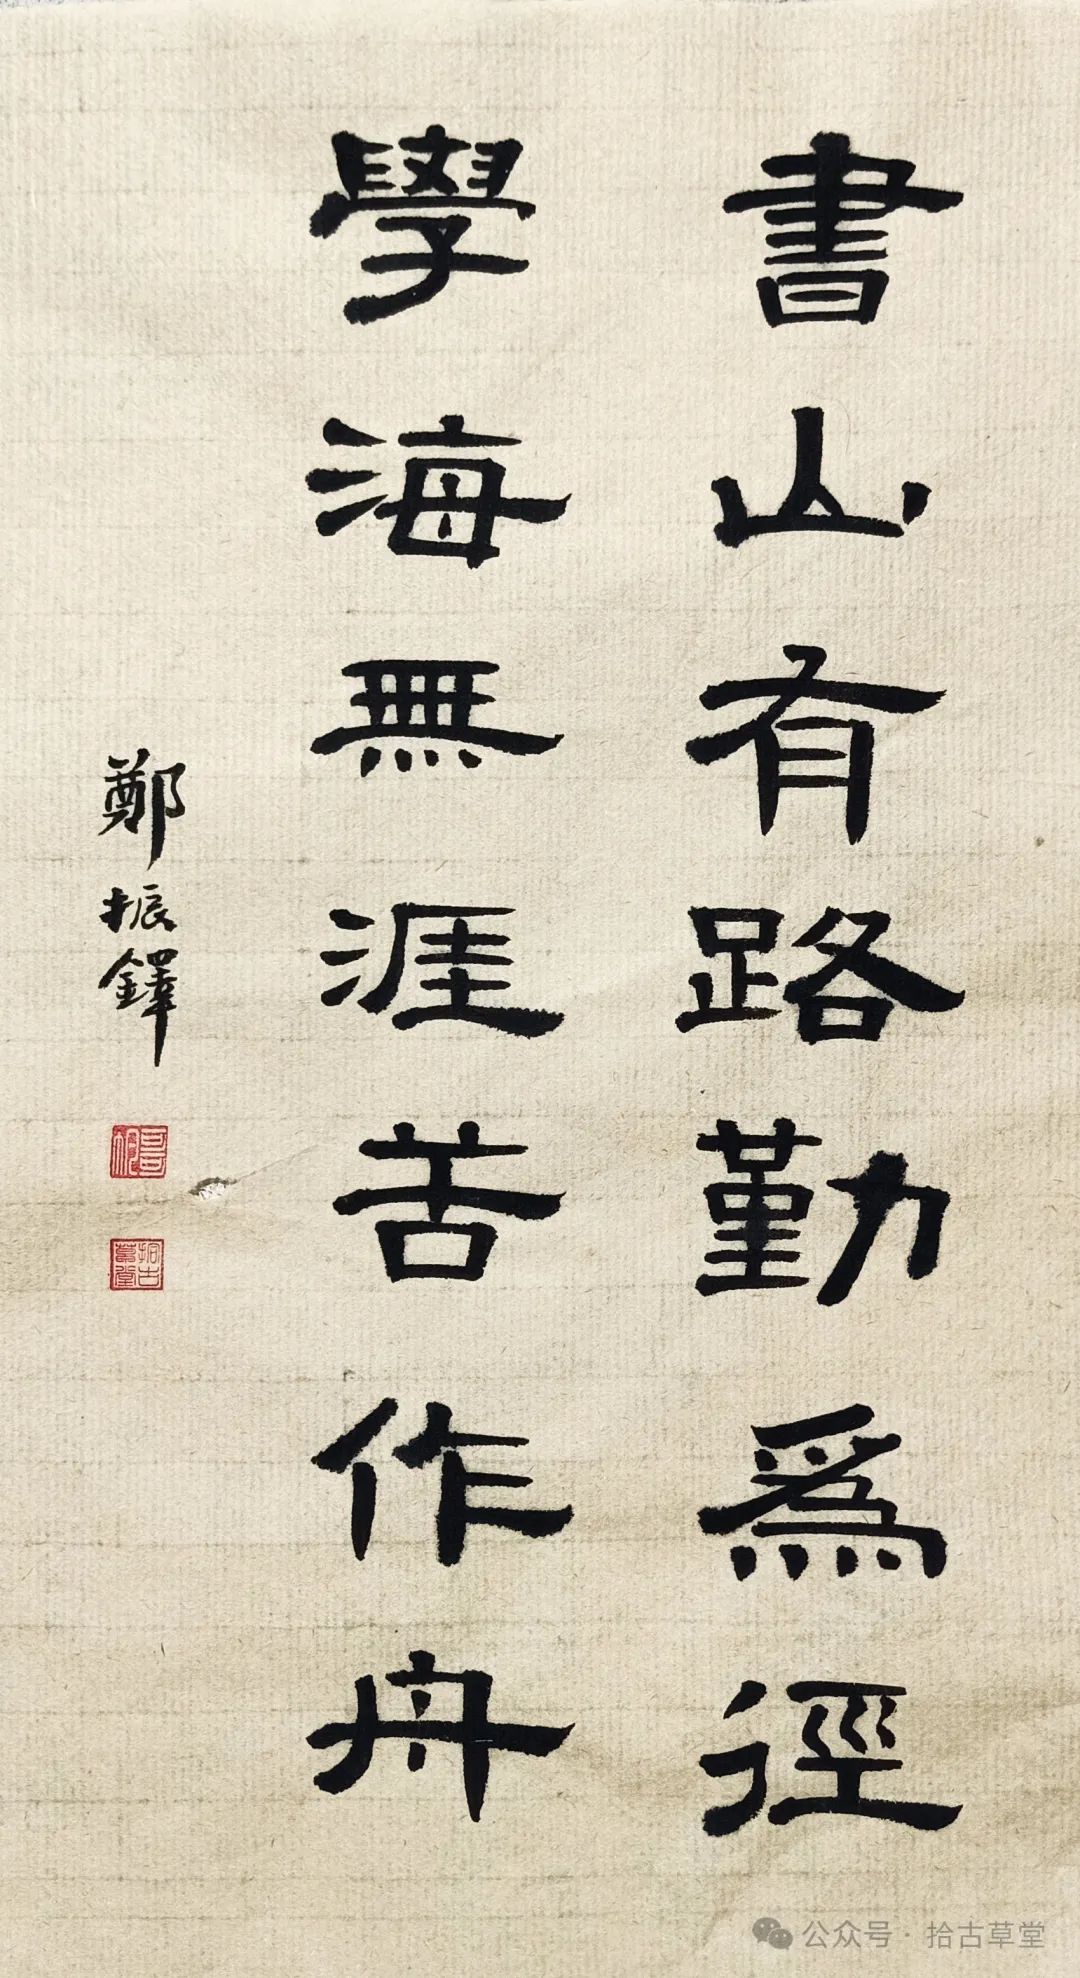 書山有路勤爲徑
學海無涯苦作舟
鄭振鐸
拾古草堂
公众号·拾古草堂